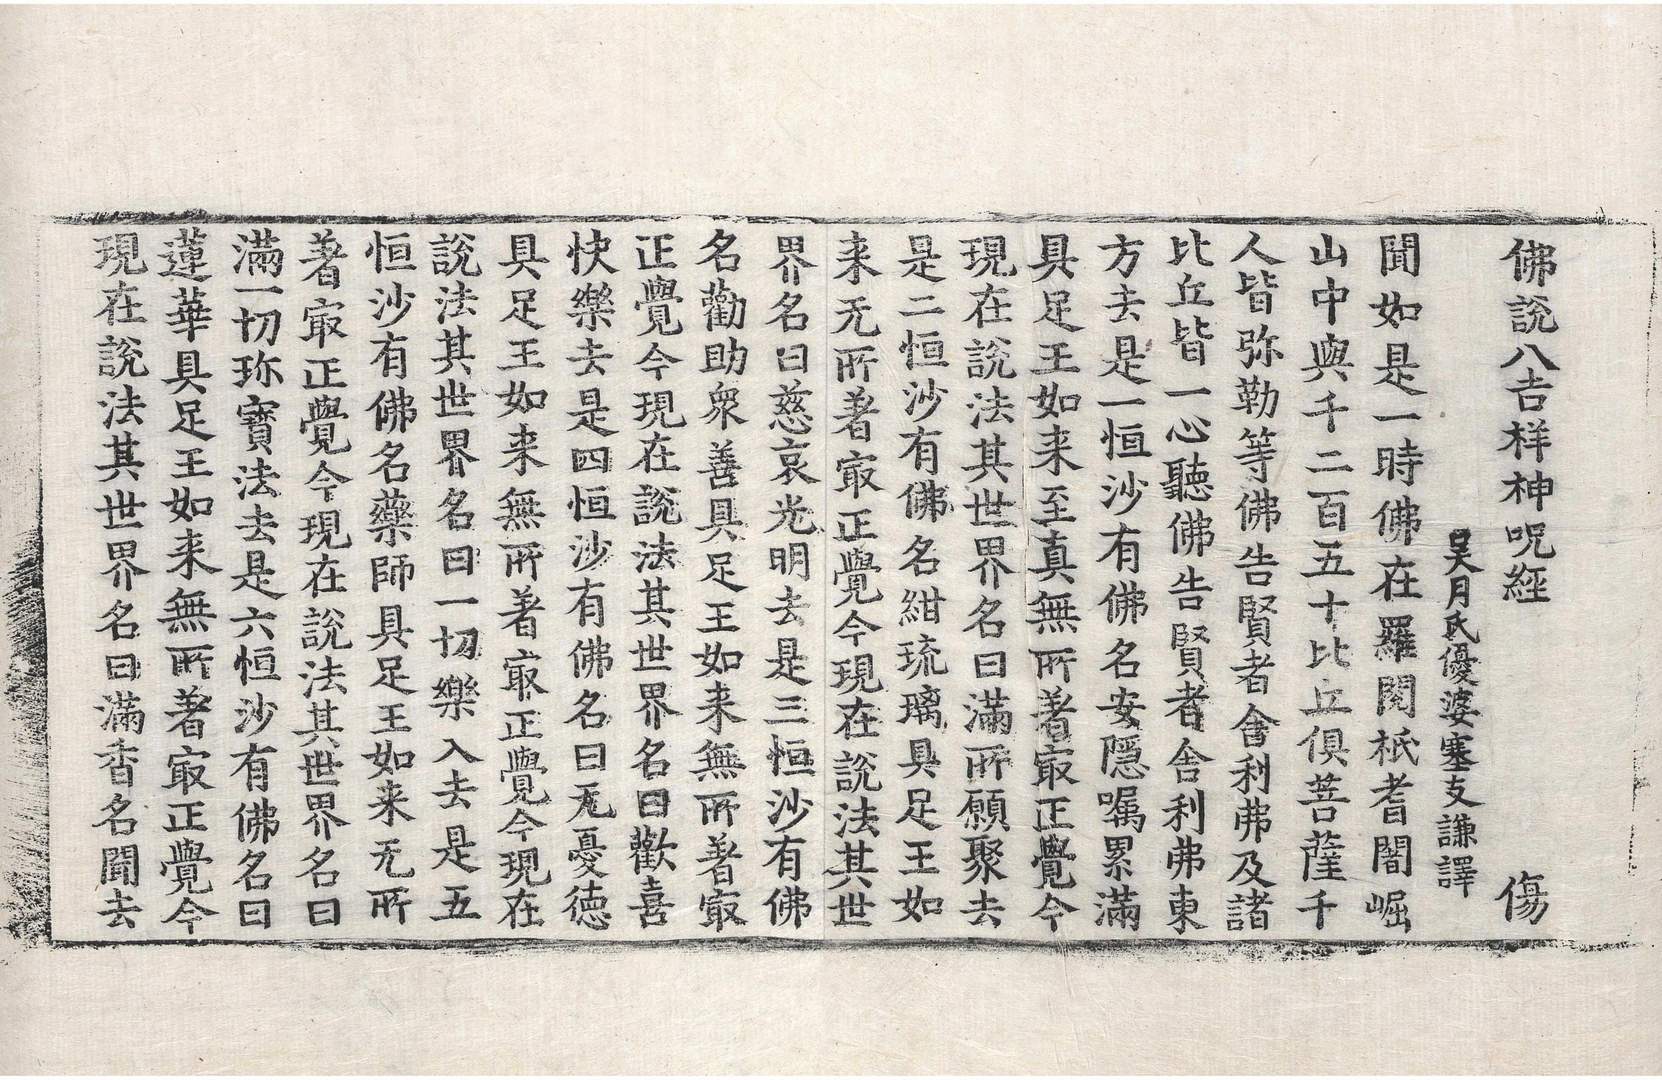 佛說八吉祥神呪經　傷
吴月氏優婆塞支謙譯
聞如是一時佛在羅閱祇耆闍崛
山中與千二百五十比丘俱菩薩千
人皆弥勒等佛告賢者舍利弗及諸
比丘皆一心聽佛告賢者舍利弗東
方去是一恒沙有佛名安隱嘱累滿
具足王如来至真無所著㝡正覺今
現在說法其世界名曰滿所願聚去
是二恒沙有佛名紺琉璃具足王如
来无所著㝡正覺今現在說法其世
界名曰慈哀光明去是三恒沙有佛
名勸助衆善具足王如来無所著㝡
正覺今現在說法其世界名曰歡喜
快樂去是四恒沙有佛名曰无憂德
具足王如来無所著㝡正覺今現在
說法其世界名曰一切樂入去是五
恒沙有佛名藥師具足王如来无所
著㝡正覺今現在說法其世界名曰
滿一切珎寳法去是六恒沙有佛名曰
蓮華具足王如来無所著㝡正覺今
現在說法其世界名曰滿香名聞去